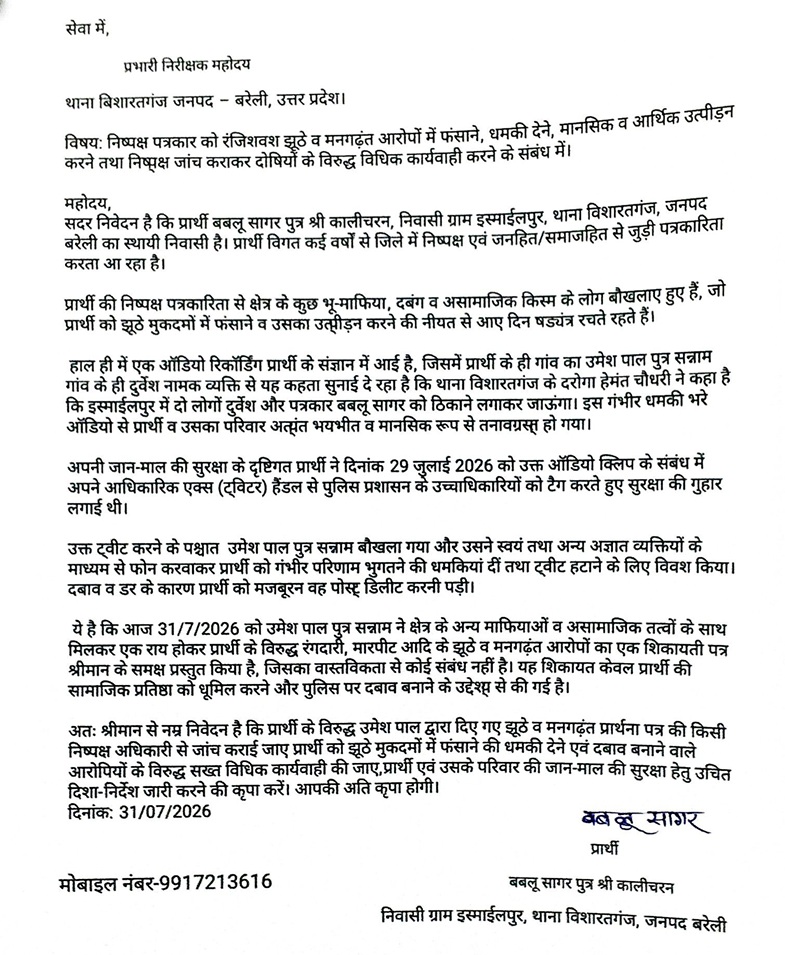 सेवा में,
प्रभारी निरीक्षक महोदय
थाना बिशारतगंज जनपद – बरेली, उत्तर प्रदेश।
विषय: निष्पक्ष पत्रकार को रंजिशवश झूठे व मनगढ़ंत आरोपों में फंसाने, धमकी देने, मानसिक व आर्थिक उत्पीड़न
करने तथा निष्पक्ष जांच कराकर दोषियों के विरुद्ध विधिक कार्यवाही करने के संबंध में।
महोदय,
सदर निवेदन है कि प्रार्थी बबलू सागर पुत्र श्री कालीचरन, निवासी ग्राम इस्माईलपुर, थाना विशारतगंज, जनपद
बरेली का स्थायी निवासी है। प्रार्थी विगत कई वर्षों से जिले में निष्पक्ष एवं जनहित/समाजहित से जुड़ी पत्रकारिता
करता आ रहा है।
प्रार्थी की निष्पक्ष पत्रकारिता से क्षेत्र के कुछ भू-माफिया, दबंग व असामाजिक किस्म के लोग बौखलाए हुए हैं, जो
प्रार्थी को झूठे मुकदमों में फंसाने व उसका उत्पीड़न करने की नीयत से आए दिन षड्यंत्र रचते रहते हैं।
हाल ही में एक ऑडियो रिकॉर्डिंग प्रार्थी के संज्ञान में आई है, जिसमें प्रार्थी के ही गांव का उमेश पाल पुत्र सन्नाम
गांव के ही दुर्वेश नामक व्यक्ति से यह कहता सुनाई दे रहा है कि थाना विशारतगंज के दरोगा हेमंत चौधरी ने कहा है
कि इस्माईलपुर में दो लोगों दुर्वेश और पत्रकार बबलू सागर को ठिकाने लगाकर जाऊंगा। इस गंभीर धमकी भरे
ऑडियो से प्रार्थी व उसका परिवार अत्यंत भयभीत व मानसिक रूप से तनावग्रस्त हो गया।
अपनी जान-माल की सुरक्षा के दृष्टिगत प्रार्थी ने दिनांक 29 जुलाई 2026 को उक्त ऑडियो क्लिप के संबंध में
अपने आधिकारिक एक्स (ट्विटर) हैंडल से पुलिस प्रशासन के उच्चाधिकारियों को टैग करते हुए सुरक्षा की गुहार
लगाई थी।
उक्त ट्वीट करने के पश्चात उमेश पाल पुत्र सन्नाम बौखला गया और उसने स्वयं तथा अन्य अज्ञात व्यक्तियों के
माध्यम से फोन करवाकर प्रार्थी को गंभीर परिणाम भुगतने की धमकियां दीं तथा ट्वीट हटाने के लिए विवश किया।
दबाव व डर के कारण प्रार्थी को मजबूरन वह पोस्ट डिलीट करनी पड़ी।
ये है कि आज 31/7/2026 को उमेश पाल पुत्र सन्नाम ने क्षेत्र के अन्य माफियाओं व असामाजिक तत्वों के साथ
मिलकर एक राय होकर प्रार्थी के विरुद्ध रंगदारी, मारपीट आदि के झूठे व मनगढ़ंत आरोपों का एक शिकायती पत्र
श्रीमान के समक्ष प्रस्तुत किया है, जिसका वास्तविकता से कोई संबंध नहीं है। यह शिकायत केवल प्रार्थी की
सामाजिक प्रतिष्ठा को धूमिल करने और पुलिस पर दबाव बनाने के उद्देश्य से की गई है।
अतः श्रीमान से नम्र निवेदन है कि प्रार्थी के विरुद्ध उमेश पाल द्वारा दिए गए झूठे व मनगढ़ंत प्रार्थना पत्र की किसी
निष्पक्ष अधिकारी से जांच कराई जाए प्रार्थी को झूठे मुकदमों में फंसाने की धमकी देने एवं दबाव बनाने वाले
आरोपियों के विरुद्ध सख्त विधिक कार्यवाही की जाए,प्रार्थी एवं उसके परिवार की जान-माल की सुरक्षा हेतु उचित
दिशा-निर्देश जारी करने की कृपा करें। आपकी अति कृपा होगी।
दिनांक: 31/07/2026
बबलू सागर
प्रार्थी
मोबाइल नंबर-9917213616
बबलू सागर पुत्र श्री कालीचरन
निवासी ग्राम इस्माईलपुर, थाना विशारतगंज, जनपद बरेली